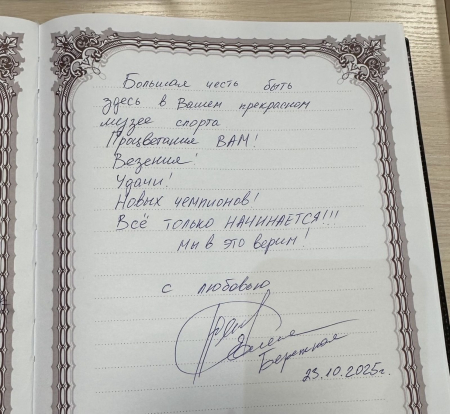 Большая честь быть
здесь в Вашем прекрасном
музее спорта
Процветания ВАМ!
Везения!
Удачи!
Новых чемпионов!
Всё ТОЛЬКО НАЧИНАЕТСЯ!!!
Мы в это верим!
С любовью
Елена
Бережная
23.10.2025г.